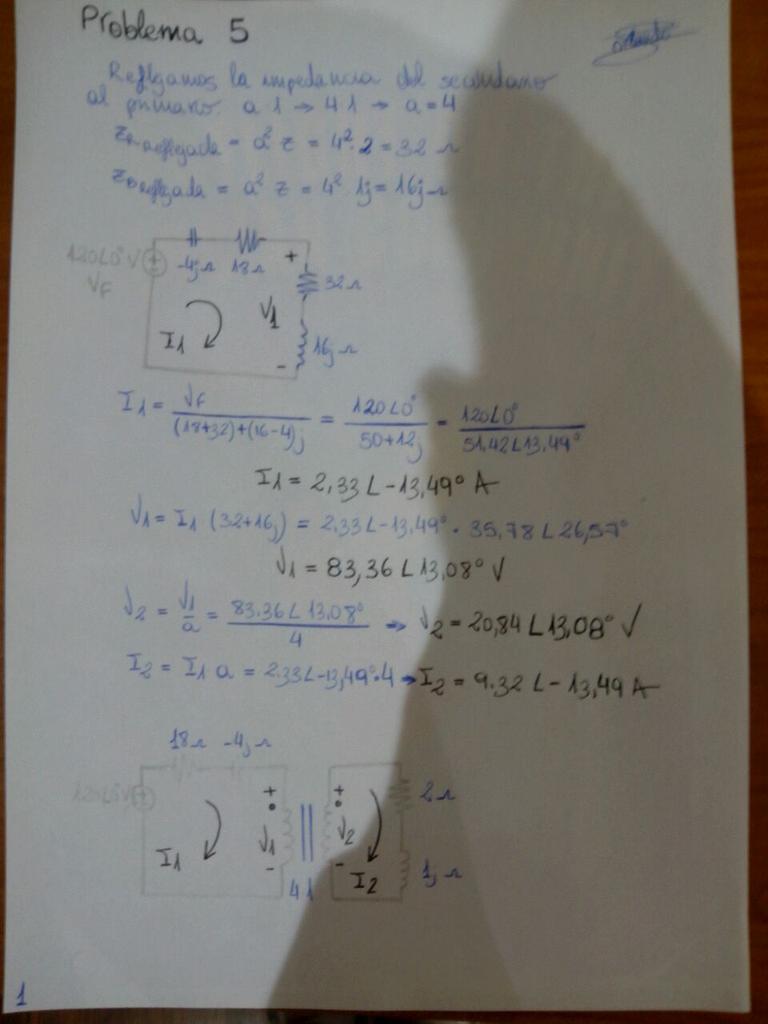 Problema 5
Reflejamos la impedancia del secundario
al primario. a 1 → 4 1 → a = 4
ZR reflejada = a² z = 4² · 2 = 32 Ω
Z reflejada = a² z = 4² · 1j = 16j Ω
120∟0° V
VF
-4jΩ 18Ω
+
32Ω
V1
I1
16jΩ
-
I1 = VF / (18+32)+(16-4)j = 120∟0° / 50+12j = 120∟0° / 51,42∟13,49°
I1 = 2,33∟-13,49° A
V1 = I1 (32+16j) = 2,33∟-13,49° · 35,78∟26,57°
V1 = 83,36∟13,08° V
V2 = V1 / a = 83.36∟13,08° / 4 → V2 = 20,84∟13,08° V
I2 = I1 a = 2.33∟-13,49° · 4 → I2 = 9.32∟-13,49 A
18Ω -4jΩ
120∟0° V
+ +
2Ω
I1 V1 V2
- -
I2
1jΩ
4 1
1